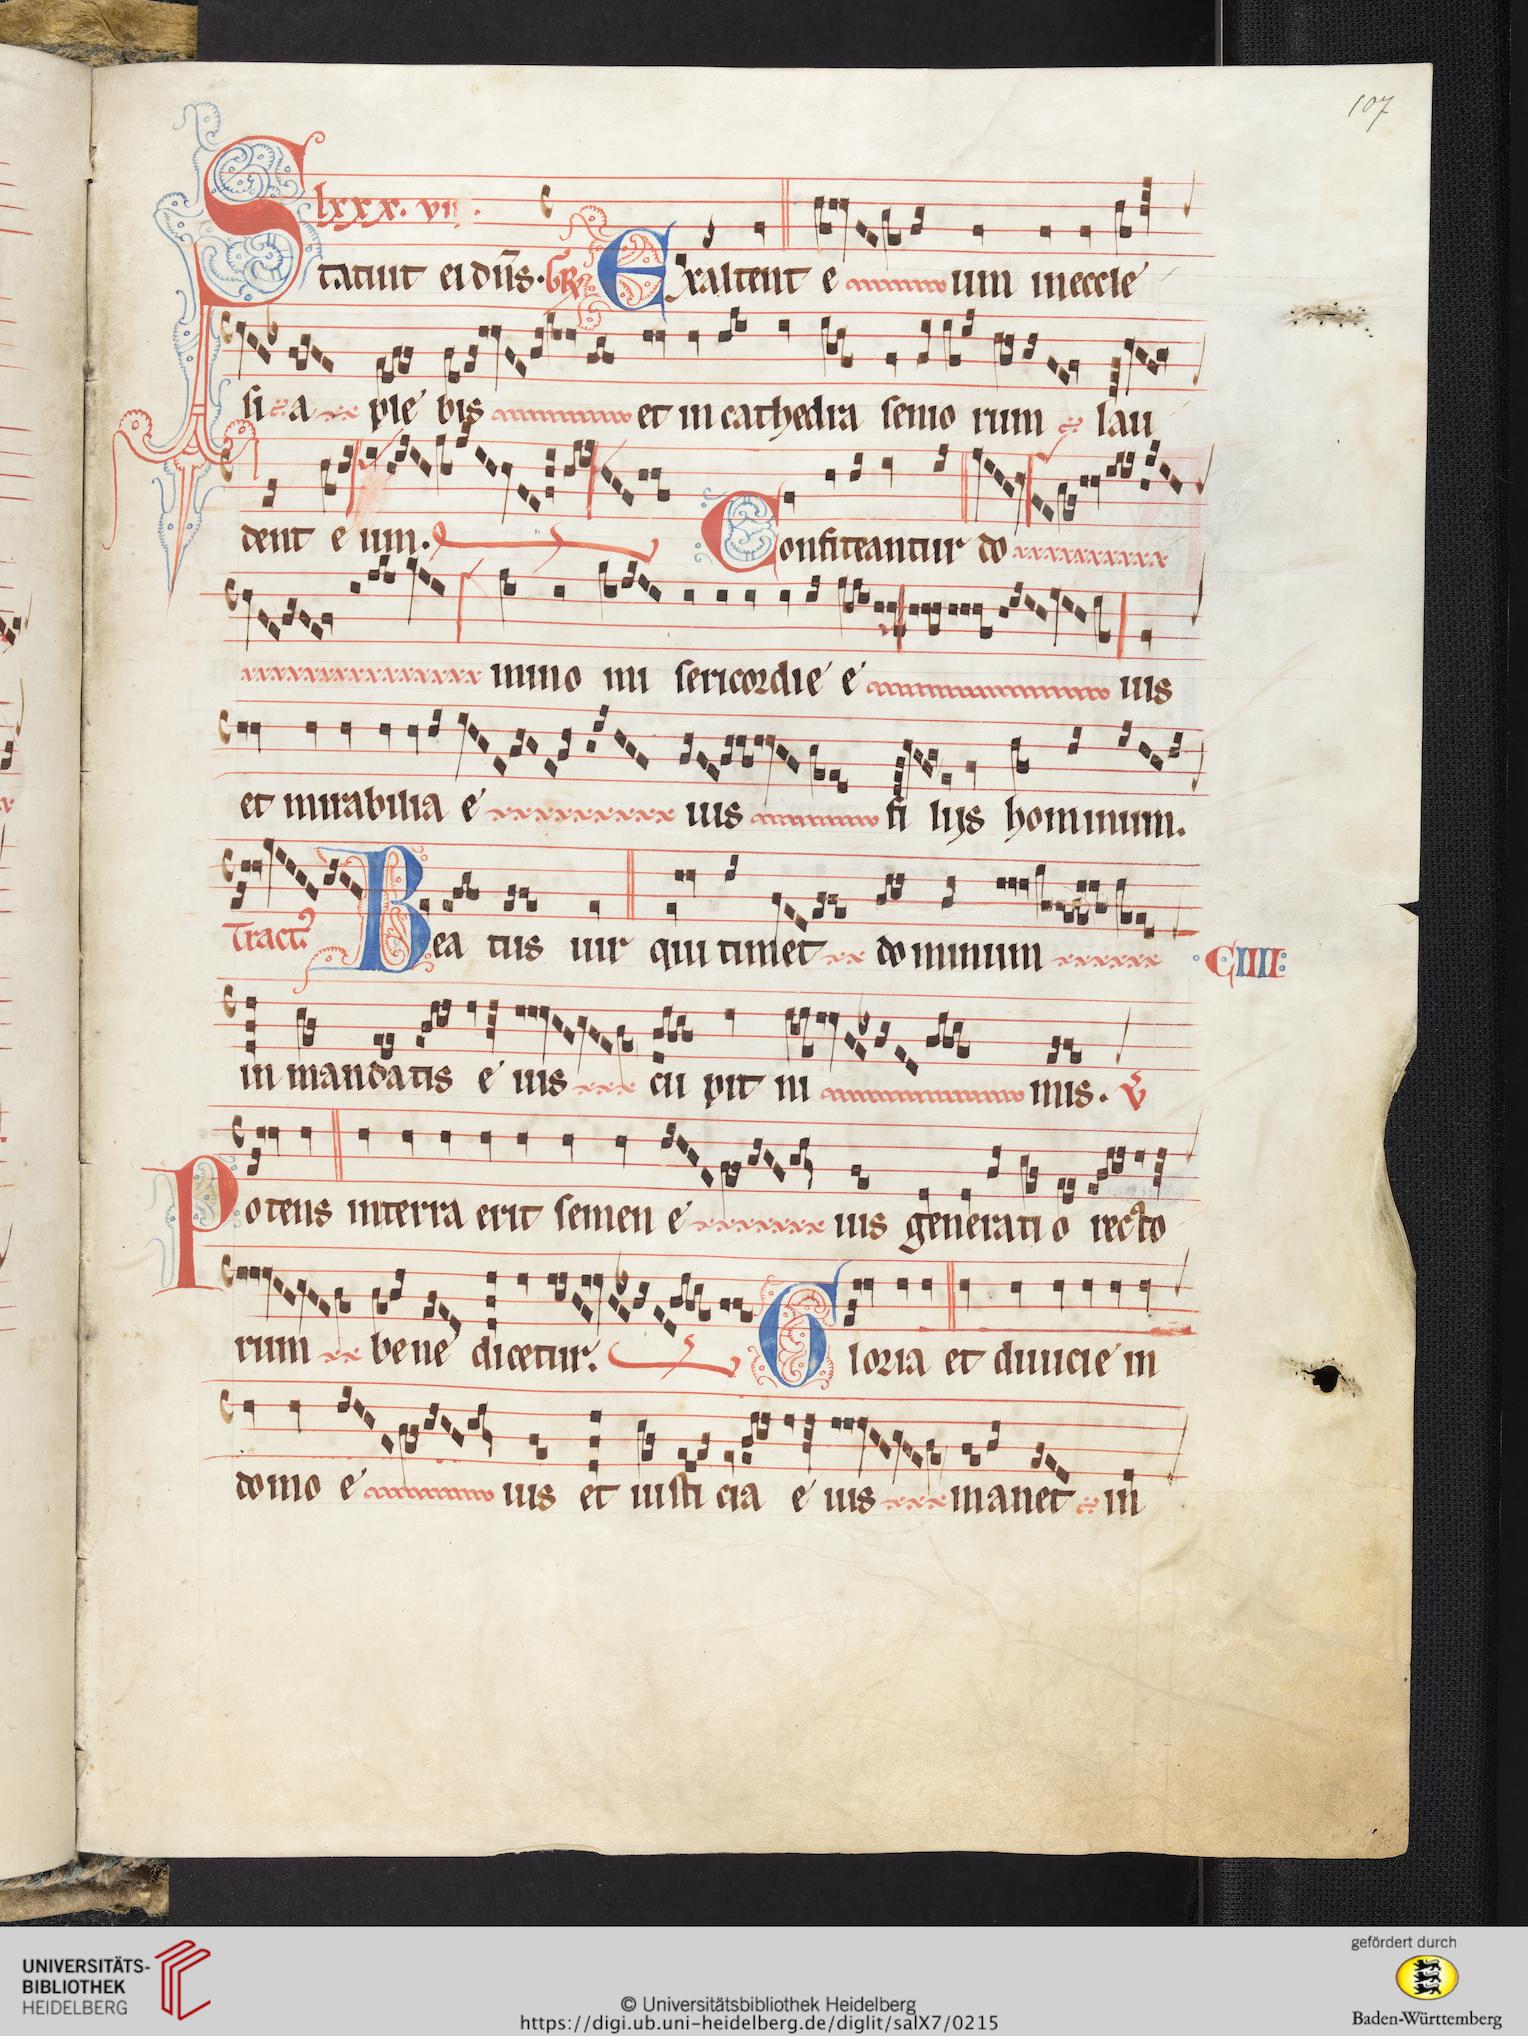 107
lxxx. vii.
Statuit ei dns. Gr Exaltent e um in eccle
si a ple bis et in cathedra senio rum lau
dent e um. Confiteantur do
mino mi sericordie e ius
et mirabilia e ius fi lijs hominum.
Tractus Bea tus uir qui timet do minum CIIII
in mandatis e ius cu pit ni mis. V
Potens in terra erit semen e ius generati o recto
rum bene dicetur. Gloria et diuicie in
domo e ius et iusti cia e ius manet in
UNIVERSITÄTS-
BIBLIOTHEK
HEIDELBERG
© Universitätsbibliothek Heidelberg
https://digi.ub.uni-heidelberg.de/diglit/salX7/0215
gefördert durch
Baden-Württemberg